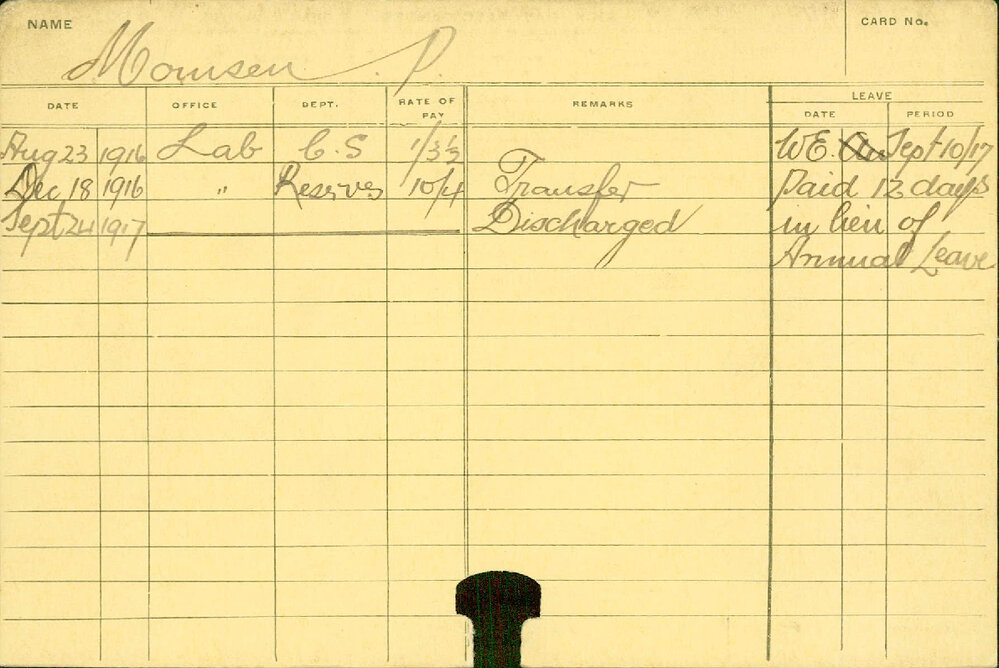 NAME Momsen. P. CARD No.
DATE OFFICE DEPT. RATE OF PAY REMARKS LEAVE
DATE PERIOD
Aug 23 1916 Lab C.S 1/3½ WE. Sept 10/17
Dec 18 1916 " Reserves 10/4 Transfer Paid 12 days
Sept 24 1917 Discharged in lieu of
Annual Leave